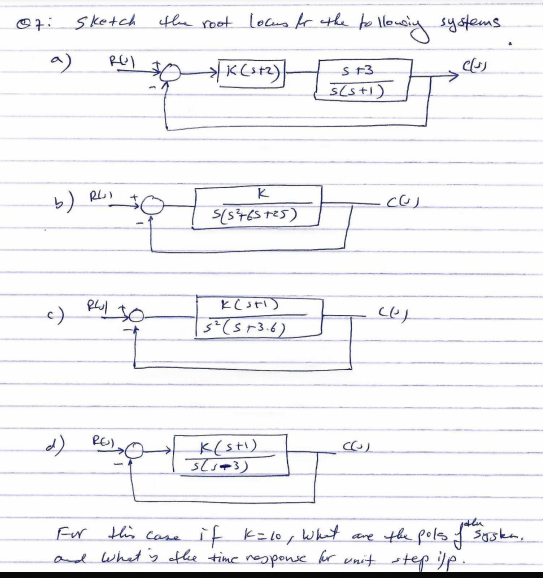 Q7: Sketch the root locus for the following systems.
a) R(s) + - K(s+2) s+3 / s(s+1) C(s)
b) R(s) + - K / s(s²+6s+25) C(s)
c) R(s) + - K(s+1) / s²(s+3.6) C(s)
d) R(s) - K(s+1) / s(s-3) C(s)
For this case if K=10, what are the poles of the system.
and what is the time response for unit step i/p.